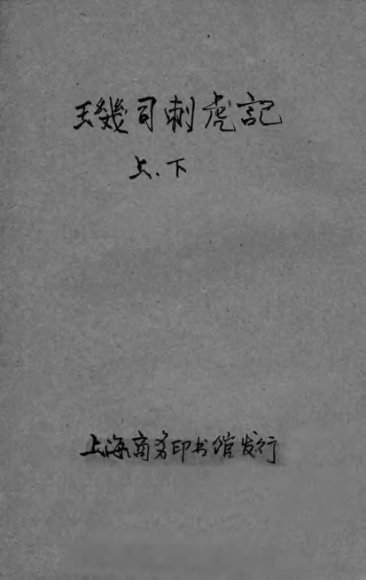 璣司刺虎記
上.下
上海商务印书馆发行